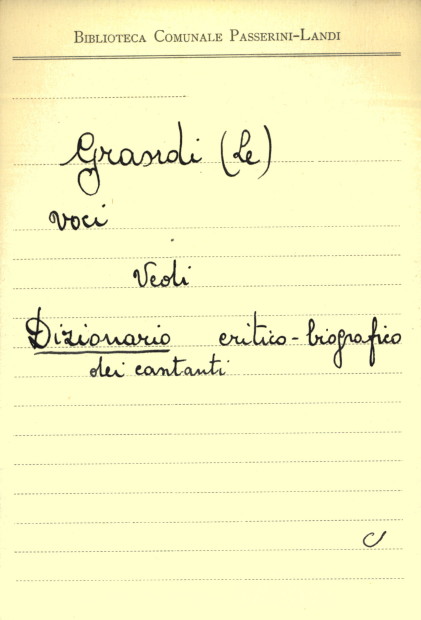 BIBLIOTECA COMUNALE PASSERINI-LANDI
Grandi (Le)
voci
Vedi
Dizionario critico-biografico
dei cantanti